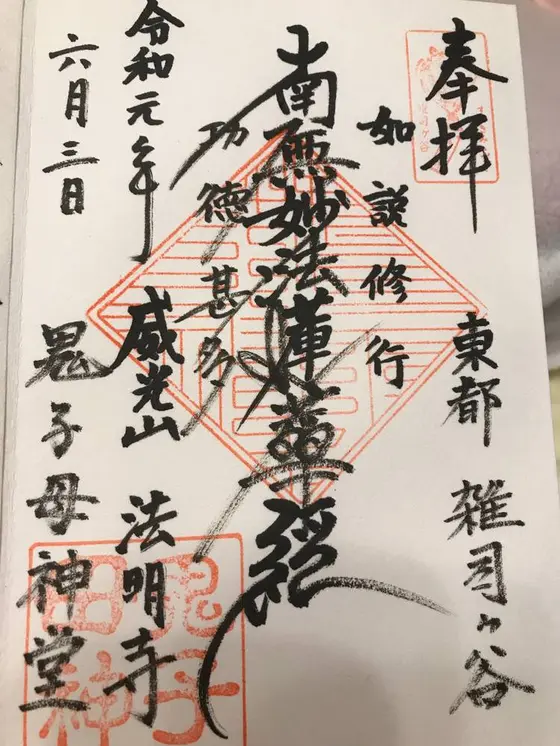 奉拝
東都 雑司ヶ谷
如説修行
南無妙法蓮華経
功徳甚多
令和元年
六月三日
威光山 法明寺
鬼子母神堂